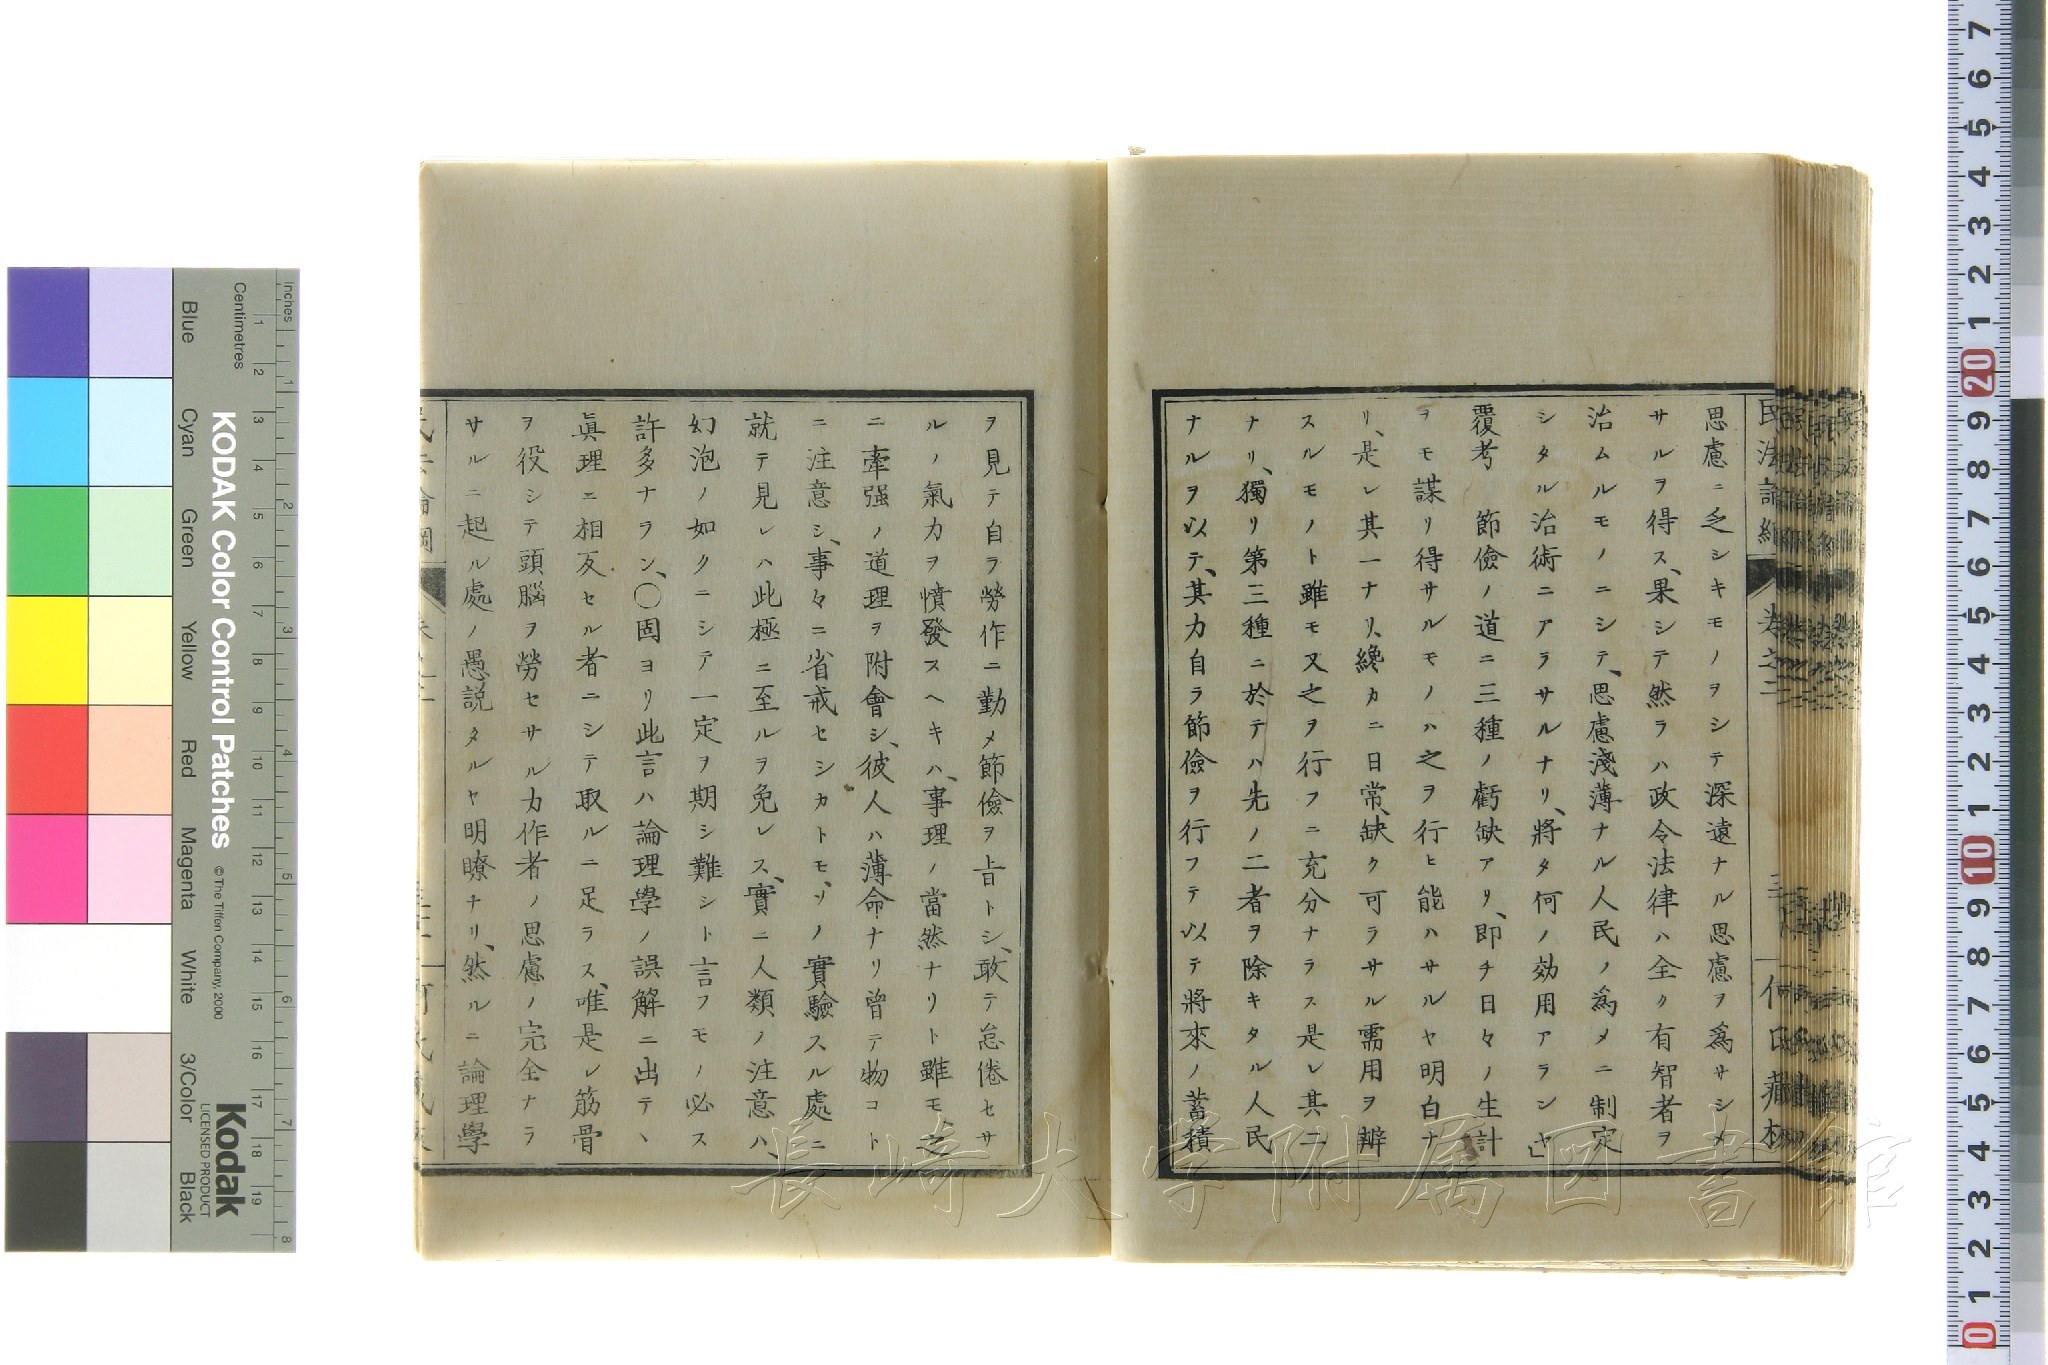 思慮ニ乏シキモノヲシテ深遠ナル思慮ヲ爲サシメ
サルヲ得ス、果シテ然ラハ政令法律ハ全ク有智者ヲ
治ムルモノニシテ、思慮淺薄ナル人民ノ爲メニ制定
シタル治術ニアラサルナリ、將タ何ノ効用アランヤ」
覆考　節儉ノ道ニ三種ノ虧缺アリ、即チ日々ノ生計
ヲモ謀リ得サルモノハ之ヲ行ヒ能ハサルヤ明白ナ
リ、是レ其一ナリ、纔カニ日常、缺ク可ラサル需用ヲ辨
スルモノト雖モ又之ヲ行フニ充分ナラス是レ其二
ナリ、獨リ第三種ニ於テハ先ノ二者ヲ除キタル人民
ナルヲ以テ、其力自ラ節儉ヲ行フテ以テ將來ノ蓄積
ヲ見テ自ラ勞作ニ勤メ節儉ヲ旨トシ、敢テ怠倦セサ
ルノ氣力ヲ憤發スヘキハ、事理ノ當然ナリト雖モ、之
ニ牽强ノ道理ヲ附會シ、彼人ハ薄命ナリ曾テ物コト
ニ注意シ、事々ニ省戒セシカトモ、ソノ實驗スル處ニ
就テ見レハ此極ニ至ルヲ免レス、實ニ人類ノ注意ハ、
幻泡ノ如クニシテ一定ヲ期シ難シト言フモノ必ス
許多ナラン、〇固ヨリ此言ハ論理學ノ誤解ニ出テヽ
眞理ニ相反セル者ニシテ取ルニ足ラス、唯是レ筋骨
ヲ役シテ頭腦ヲ勞セサル力作者ノ思慮ノ完全ナラ
サルニ起ル處ノ愚説タルヤ明瞭ナリ、然ルニ論理學
長崎大学附属図書館
KODAK Color Control Patches
© The Tiffen Company, 2000
Kodak
LICENSED PRODUCT
Inches
Centimetres
Blue
Cyan
Green
Yellow
Red
Magenta
White
3/Color
Black